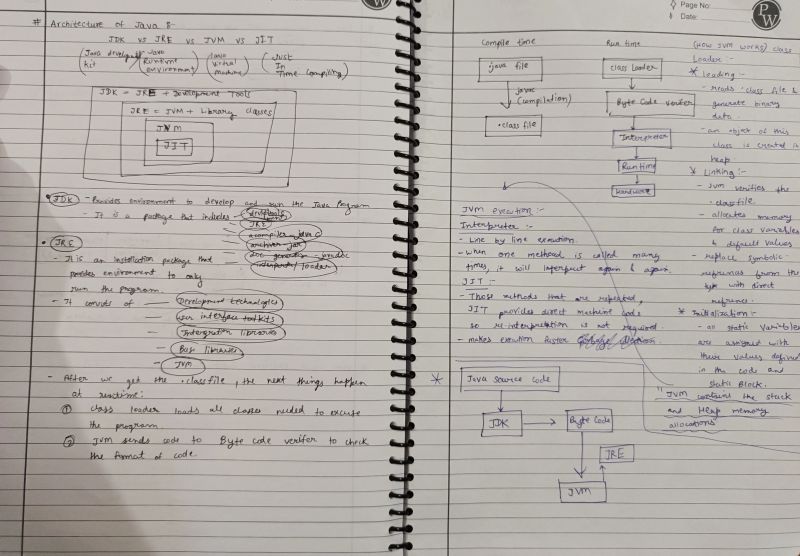 # Architecture of Java :-
JDK vs JRE vs JVM vs JIT
(Java development kit) (Java Runtime environment) (Java virtual machine) (Just In Time Compiling)
JDK = JRE + Development Tools
JRE = JVM + Library classes
JVM
JIT
JDK - Provides environment to develop and run the Java Program
- It is a package that includes - devtools
- JRE
- a compiler - javac
- archiver - jar
- doc generation - javadoc
- interpreter / loader
JRE
- It is an installation package that
provides environment to only
run the program.
- It consists of - Development technologies
- User interface toolkits
- Intergration libraries
- Base libraries
- JVM
- After we get the .class file, the next things happen
at runtime:
① class loader loads all classes needed to excute
the program.
② JVM sends code to Byte code verifer to check
the format of code.
PW
Page No:
Date:
Compile time
.java file
javac
(compilation)
.class file
Run time
class Loader
Byte Code verifer
Interpreter
Runtime
Hardware
JVM execution :-
Interpreter :-
- Line by line execution.
- when one methoad is called many
times, it will interpret again & again.
JIT :-
- Those methods that are repeated,
JIT provides direct machine code
so re-interpretation is not required.
- makes exection faster
* Java source code
JDK
Byte Code
JRE
JVM
(How JVM works) class
Loader :-
* Loading :-
- reads .class file &
generate binary
data.
- an object of this
class is created in
heap
* Linking :-
- JVM verifies the
.class file.
- allocates memory
for class variables
& default values
- replace symbolic
refrences from the
type with direct
refrence.
* Initialization :-
- all static varibles
are assigned with
their values defined
in the code and
static Block.
"JVM contains the stack
and Heap memory
allocations"